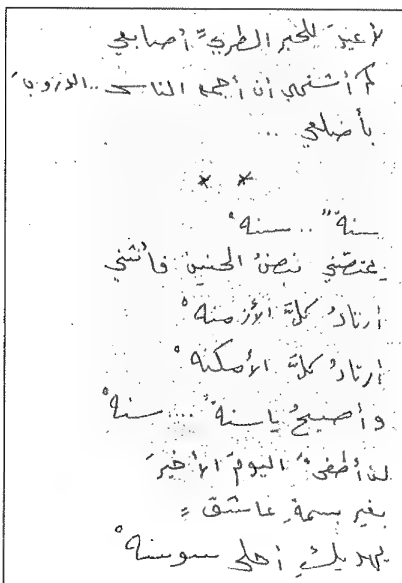 لأعير للحبر الطريِّ أصابعي
كم أشتهي أن أجمع الناس .. الدروبَ
بأضلعي ..
* *
سنةٌ .. سنهْ
يغتصّني نبضُ الحنين فأنثني
أرتادُ كلَّ الأزمنهْ
أرتادُ كلَّ الأمكنهْ
وأصيحُ يا سنةً ... سنهْ
لن أطفئَ اليومَ الأخيرَ
بغير بسمةِ عاشقٍ
يهديكِ أحلى سوسنهْ